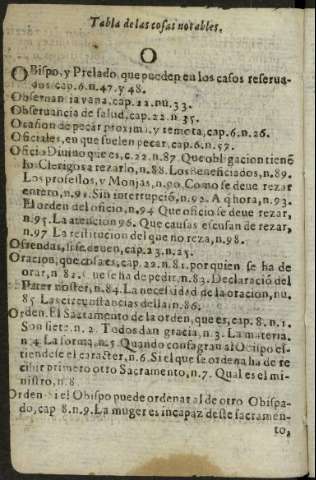 Tabla de las cosas notables.
O
OBispo, y Prelado, que pueden en los casos reserua-
dos, cap. 6. n. 47. y 48.
Obseruancia vana, cap. 22. nu. 33.
Obseruancia de salud, cap. 22. n. 35.
Ocasion de pecar proxima, y remota, cap. 6. n. 26.
Oficiales, en que suelen pecar, cap. 6. n. 57.
Oficio Diuino que es, c. 22. n. 87. Que obligacion tienē
los Clerigos a rezarlo, n. 88. Los Beneficiados, n. 89.
Los professos, y Monjas, n. 90. Como se deue rezar
entero, n. 91. Sin interrupciō, n. 92. A q̄ hora, n. 93.
El orden del oficio, n. 94 Que oficio se deue rezar,
n. 95. La atencion 96. Que causas escusan de rezar,
n. 97. La restitucion del que no reza, n. 98.
Ofrendas, si se deuen, cap. 23. n. 25.
Oracion, que cosa es, cap. 22. n. 81. por quien se ha de
orar, n 82. que se ha de pedir, n. 83. Declaraciō del
Pater noster, n. 84. La necessidad de la oracion, nu.
85 Las circunstancias della in 86;
Orden. El Sacramento de la orden, que es, cap. 8. n. 1.
Son siete. n. 2. Todos dan gracia, n. 3. La materia.
n 4 La forma, n. 5. Quando consagran al Obispo es-
tiendese el caracter, n. 6. Si el que se ordena ha de re-
cibir primero otro Sacramento, n. 7. Qual es el mi-
nistro, n. 8
Orden si el Obispo puede ordenar al de otro Obispa-
do, cap 8. n. 9. La muger es incapaz deste sacramen-
to,